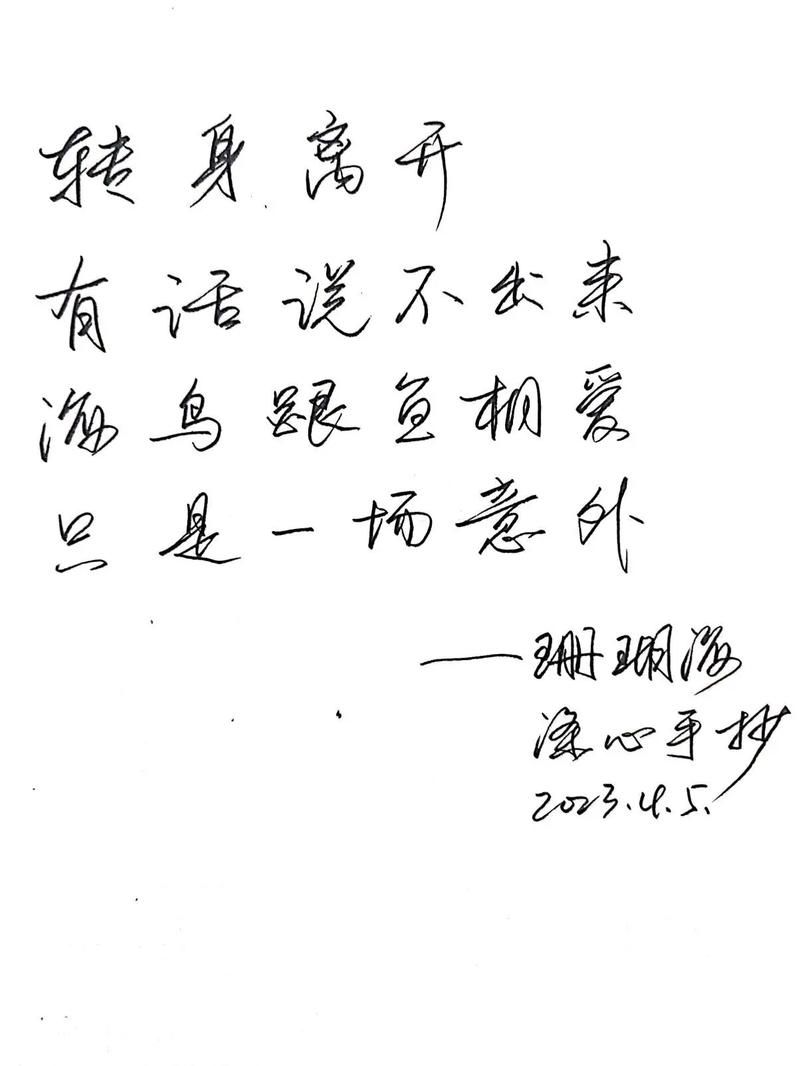 转身离开
有话说不出来
海鸟跟鱼相爱
只是一场意外
——珊瑚海
涂心手抄
2023.4.5.